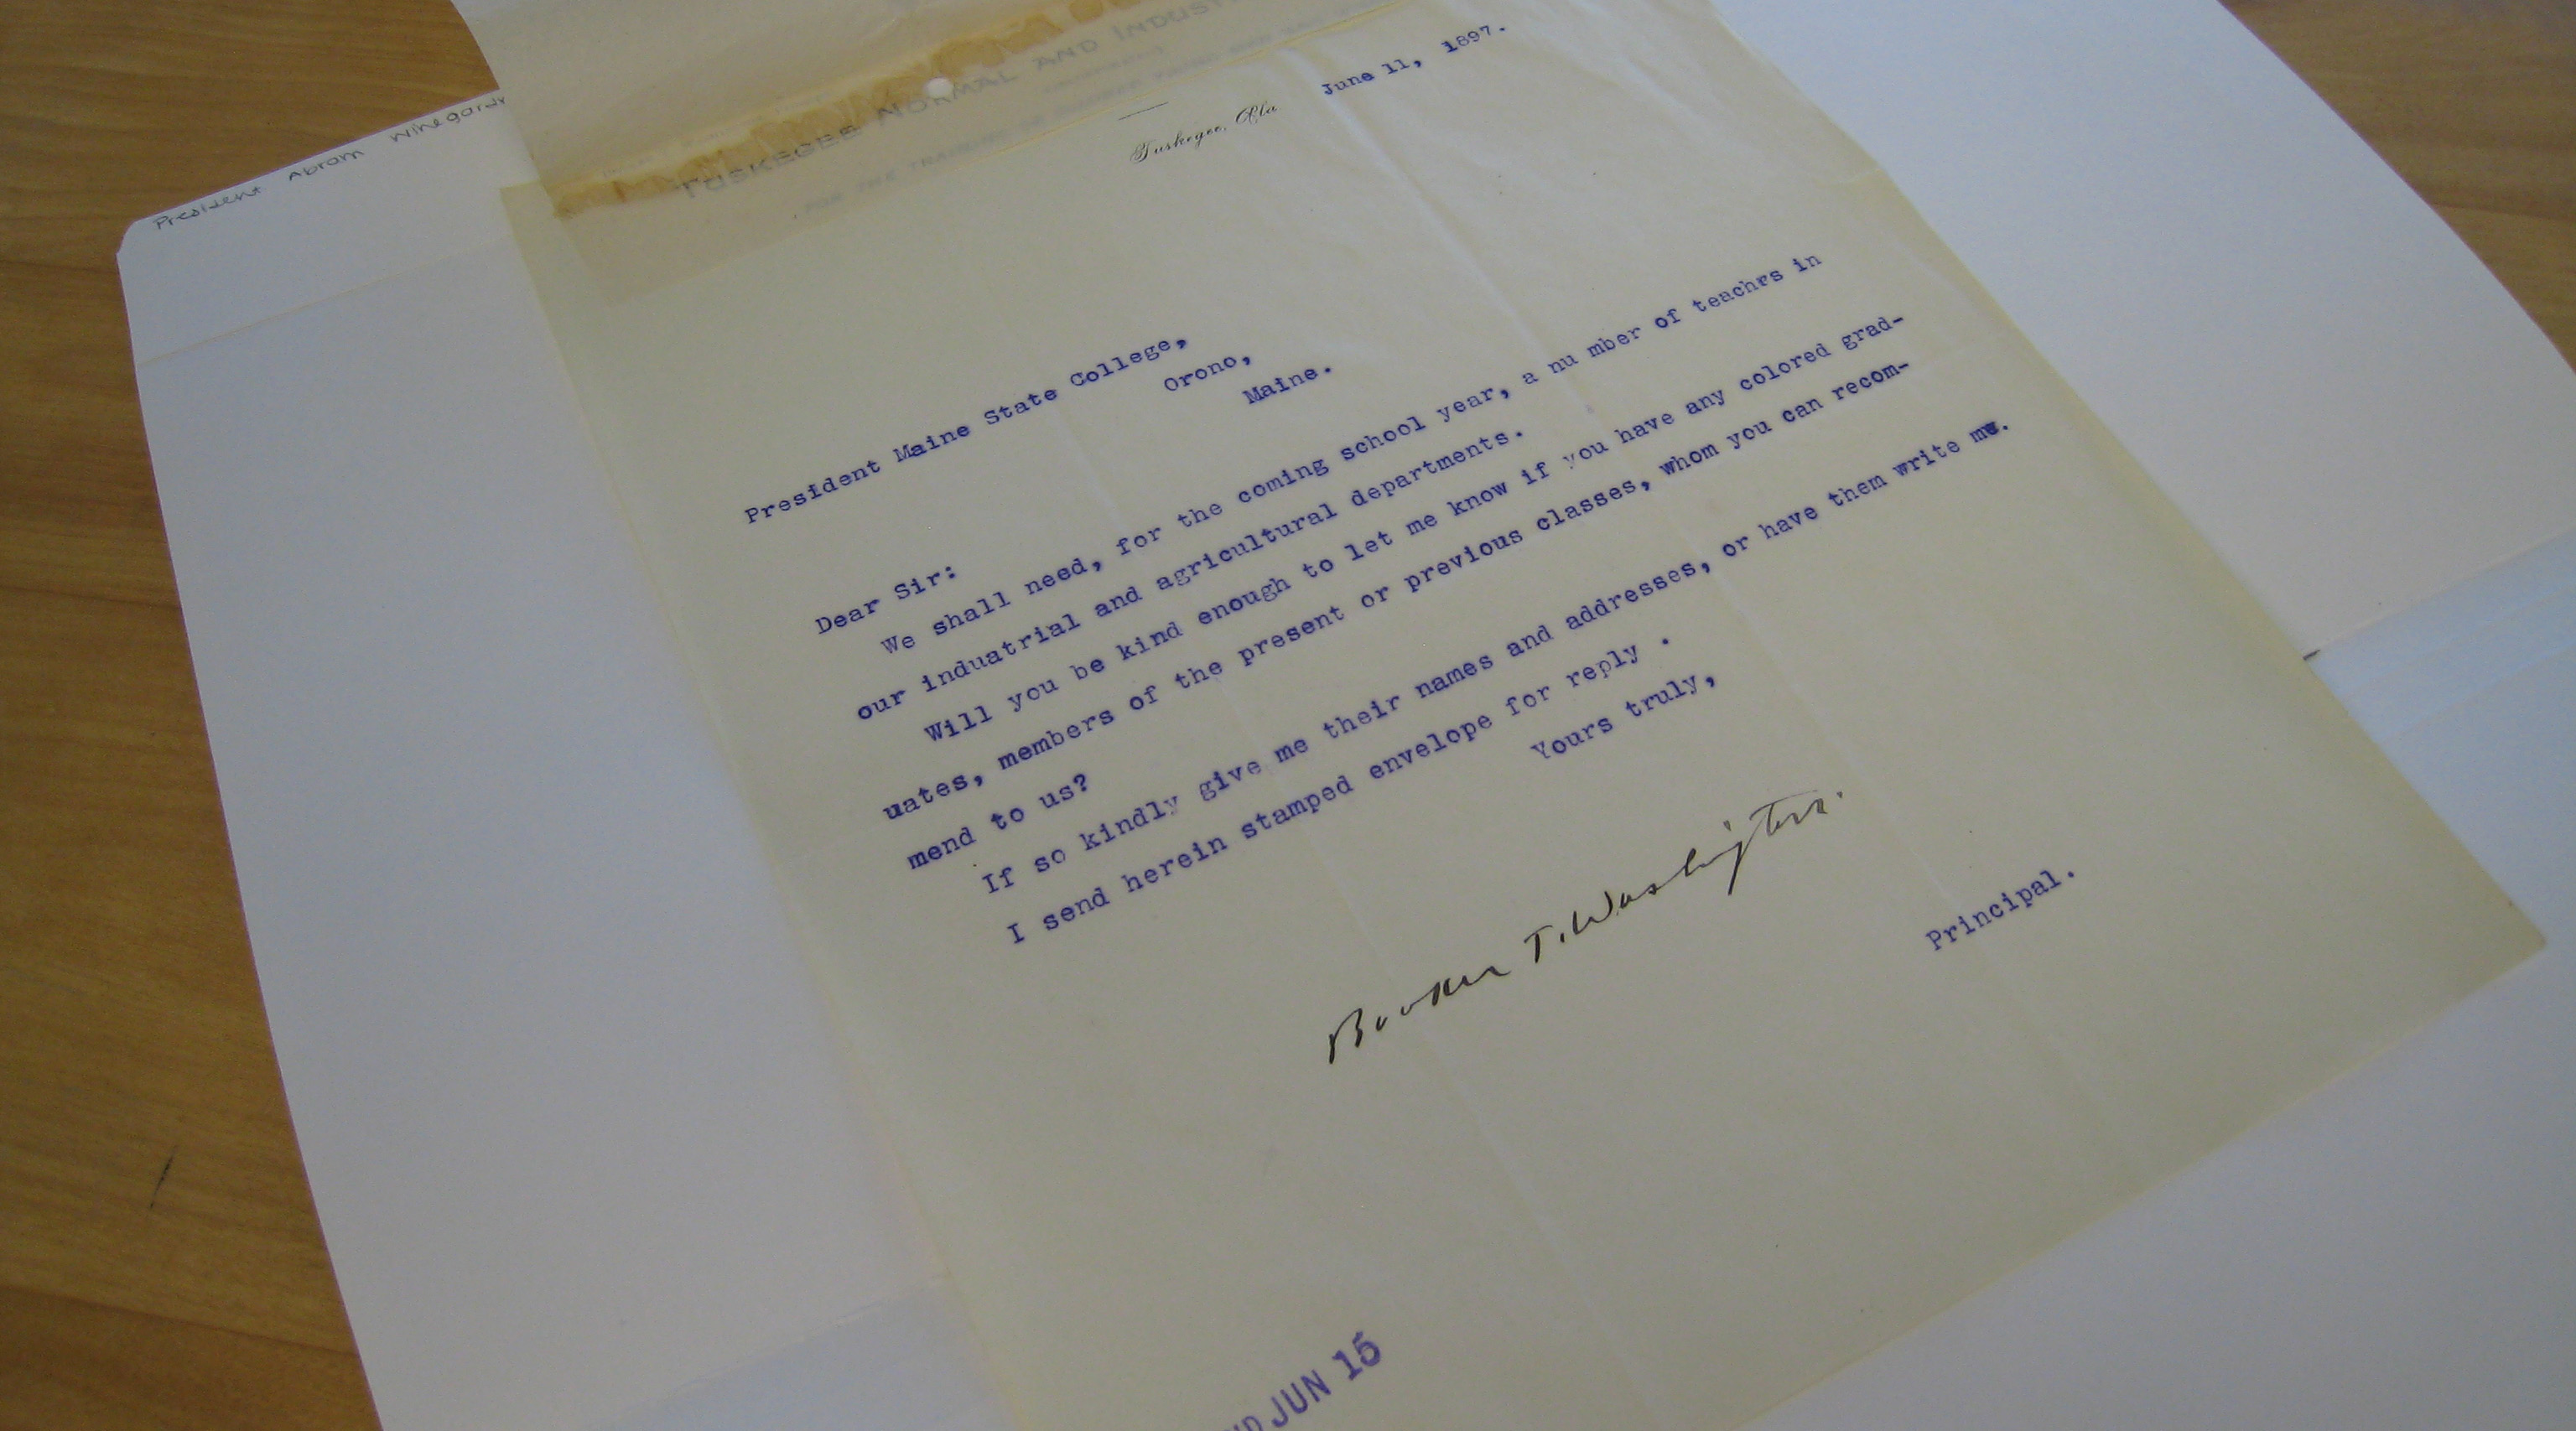 President Abram
TUSKEGEE NORMAL AND
FOR THE TRAINING
Tuskegee, Ala
June 11, 1897.
President Maine State College,
Orono,
Maine.
Dear Sir:
We shall need, for the coming school year, a nu mber of teachrs in
our induatrial and agricultural departments.
Will you be kind enough to let me know if you have any colored grad-
uates, members of the present or previous classes, whom you can recom-
mend to us?
If so kindly give me their names and addresses, or have them write me.
I send herein stamped envelope for reply .
Yours truly,
Booker T. Washington.
Principal.
JUN 15